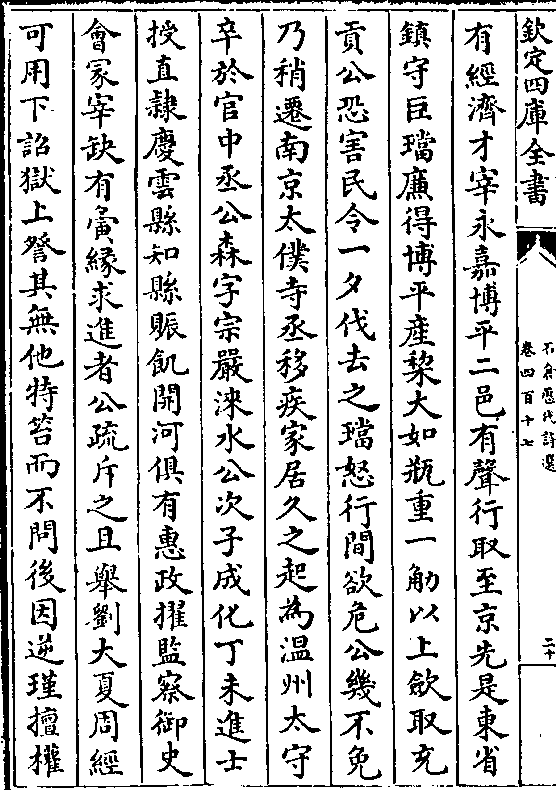 欽定四庫全書
石倉歷代詩選
卷四百十七
二十
有經濟才宰永嘉博平二邑有聲行取至京先是東省
鎮守巨璫廉得博平產梨大如瓶重一觔以上歛取充
貢公恐害民令一夕伐去之璫怒行間欲危公幾不免
乃稍遷南京太僕寺丞移疾家居久之起為溫州太守
卒於官中丞公森字宗嚴淶水公次子成化丁未進士
授直隸慶雲縣知縣賑飢開河俱有惠政擢監察御史
會冢宰缺有夤緣求進者公疏斥之且舉劉大夏周經
可用下詔獄上詧其無他特笞而不問後因逆瑾擅權